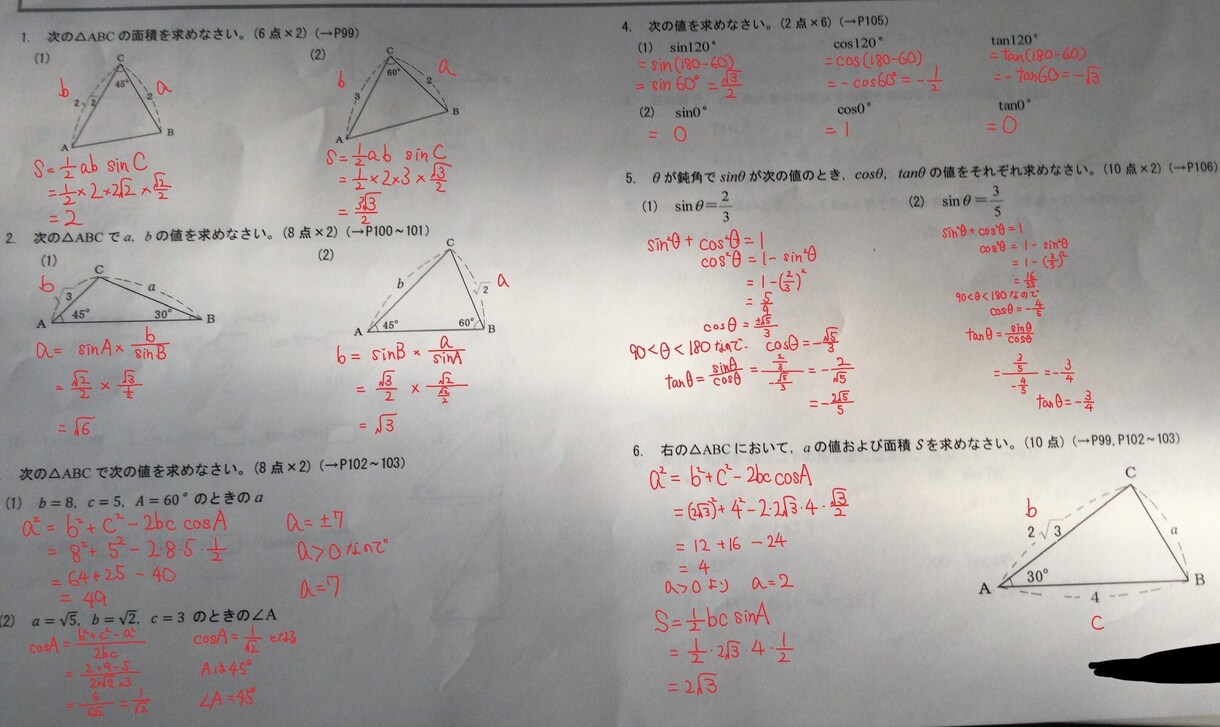 1. 次の△ABC の面積を求めなさい。(6 点×2) (→P99)
(1)
C
45°
b
2√2
2
a
A
B
S = 1/2 ab sin C
= 1/2 × 2 × 2√2 × √2/2
= 2
(2)
C
60°
b
3
2
a
A
B
S = 1/2 ab sin C
= 1/2 × 2 × 3 × √3/2
= 3√3/2
2. 次の△ABC で a, b の値を求めなさい。(8 点×2) (→P100~101)
(1)
b
C
a
√3
A
45°
30°
B
a = sinA × b/sinB
= √2/2 × √3/(1/2)
= √6
(2)
C
b
√2
a
A
45°
60°
B
b = sinB × a/sinA
= √3/2 × √2/(√2/2)
= √3
次の△ABC で次の値を求めなさい。(8 点×2) (→P102~103)
(1) b = 8, c = 5, A = 60° のときの a
a² = b² + c² − 2bc cosA
= 8² + 5² − 2·8·5 1/2
= 64 + 25 − 40
= 49
a = ±7
a > 0 なので
a = 7
(2) a = √5, b = √2, c = 3 のときの∠A
cosA = (b² + c² − a²)/2bc
= (2 + 9 − 5)/(2√2 × 3)
= 6/6√2 = 1/√2
cosA = 1/√2 となる
Aは45°
∠A = 45°
4. 次の値を求めなさい。(2 点×6) (→P105)
(1) sin120°
= sin(180−60)
= sin60° = √3/2
cos120°
= cos(180−60)
= −cos60° = −1/2
tan120°
= tan(180−60)
= −tan60 = −√3
(2) sin0°
= 0
cos0°
= 1
tan0°
= 0
5. θ が鈍角で sinθ が次の値のとき, cosθ, tanθ の値をそれぞれ求めなさい。(10 点×2) (→P106)
(1) sin θ = 2/3
sin²θ + cos²θ = 1
cos²θ = 1 − sin²θ
= 1 − (2/3)²
= 5/9
cosθ = ±√5/3
90 < θ < 180 なので、 cosθ = −√5/3
tanθ = sinθ/cosθ = (2/3)/(−√5/3) = −2/√5
= −2√5/5
(2) sin θ = 3/5
sin²θ + cos²θ = 1
cos²θ = 1 − sin²θ
= 1 − (3/5)²
= 16/25
90 < θ < 180 なので
cosθ = −4/5
tanθ = sinθ/cosθ
= (3/5)/(−4/5) = −3/4
tanθ = −3/4
6. 右の△ABC において, a の値および面積 S を求めなさい。(10 点) (→P99, P102~103)
a² = b² + c² − 2bc cosA
= (2√3)² + 4² − 2·2√3·4·√3/2
= 12 + 16 − 24
= 4
a > 0 より a = 2
S = 1/2 bc sinA
= 1/2 · 2√3 · 4 · 1/2
= 2√3
C
b
2√3
a
A
30°
B
4
c